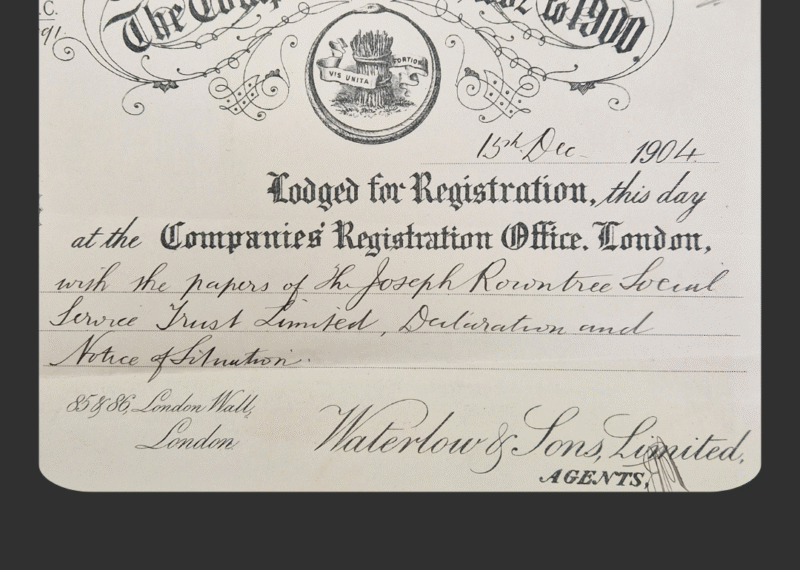 C.
91.
The Comp to 1900.
VIS UNITA FORTIOR
15th Dec 1904.
Lodged for Registration, this day
at the Companies' Registration Office, London,
with the papers of The Joseph Rowntree Social
Service Trust Limited, Declaration and
Notice of Situation.
85 & 86, London Wall,
London.
Waterlow & Sons, Limited,
AGENTS,